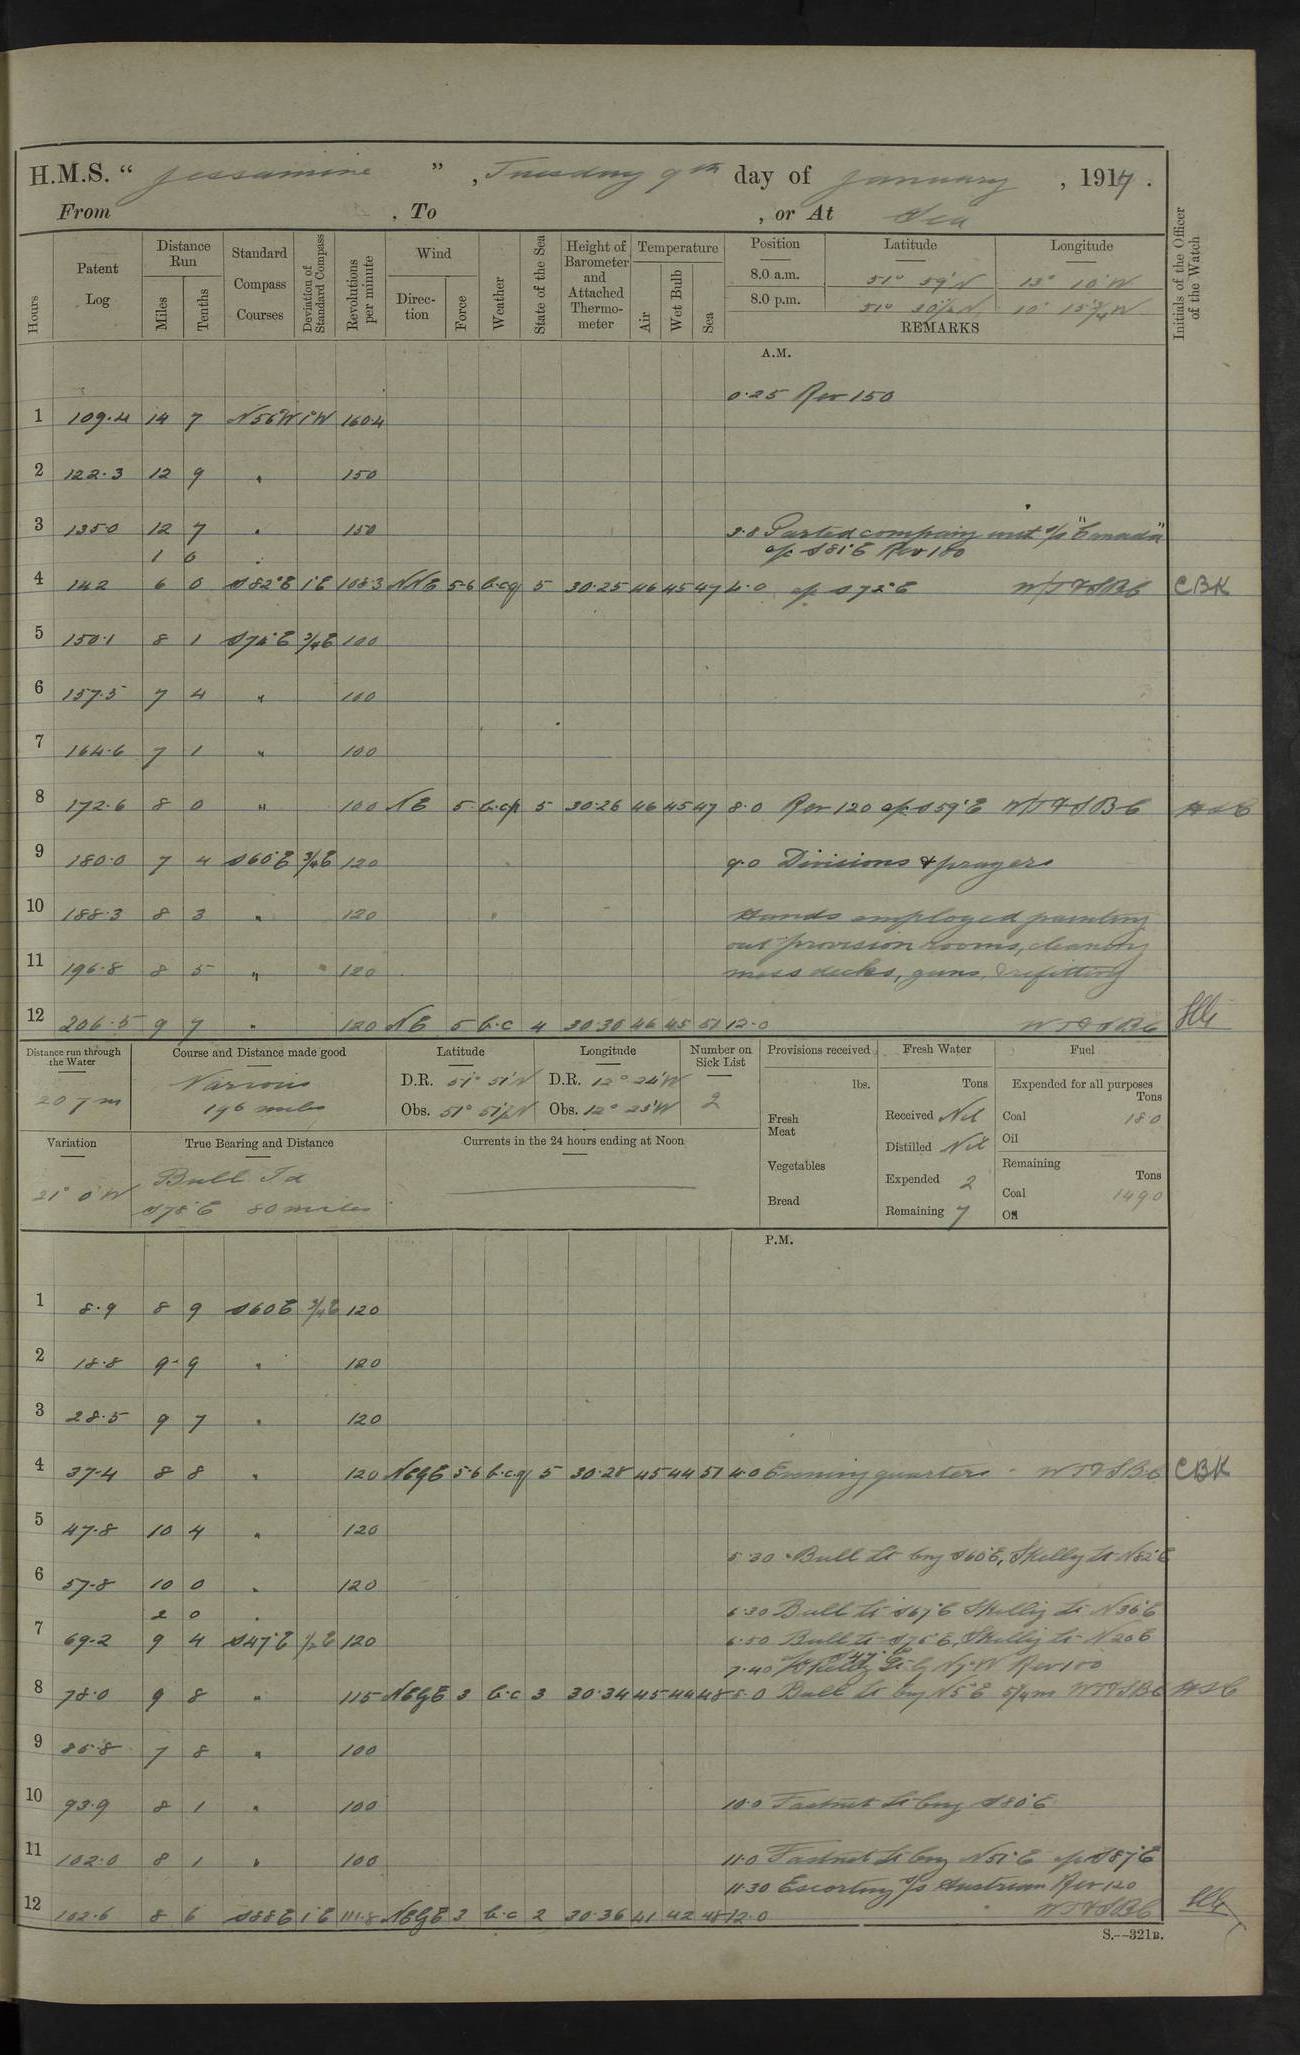 H.M.S. " Jessamine ", Tuesday 9th day of January, 1917.
From , To , or At Sea
Hours Patent Log Distance Run Miles Tenths Standard Compass Courses Deviation of Standard Compass Revolutions per minute Wind Direction Force Weather State of the Sea Height of Barometer and Attached Thermometer Temperature Air Wet Bulb Sea Position Latitude Longitude Initials of the Officer of the Watch
8.0 a.m. 51° 59' N 13° 10' W
8.0 p.m. 51° 30½ N 10° 15¾ W
REMARKS
A.M.
0.25 Rev 150
1 109.4 14 7 N56°W 1°W 160.4
2 122.3 12 9 " 150
3 135.0 12 7 " 150 3.8 Parted company with s/s "Canada"
1 6 a/c S81°E Rev 100
4 142 6 0 S82°E 1°E 108.3 NNE 5-6 b.c.q 5 30.25 46 45 47 4.0 a/c S72°E WT&SBC CBK
5 150.1 8 1 S74°E ¾E 100
6 157.5 7 4 " 100
7 164.6 7 1 " 100
8 172.6 8 0 " 100 NE 5 b.c.p 5 30.26 46 45 47 8.0 Rev 120 a/c S59°E WT&SBC HSC
9 180.0 7 4 S60°E ¾E 120 9.0 Divisions & prayers
10 188.3 8 3 " 120 Hands employed painting
out provision rooms, cleaning
11 196.8 8 5 " 120 mess decks, guns, & refitting
12 206.5 9 7 " 120 NE 5 b.c 4 30.30 46 45 51 12.0 WT&SBC
Distance run through the Water Course and Distance made good Latitude Longitude Number on Sick List Provisions received Fresh Water Fuel
207 m Various 196 miles
D.R. 51° 51' N D.R. 12° 24' W
Obs. 51° 51½ N Obs. 12° 23' W 2
lbs. Tons Expended for all purposes Tons
Fresh Meat Received Nil Coal 18.0
Distilled Nil Oil
Variation True Bearing and Distance Currents in the 24 hours ending at Noon
21° 0' W Bull Id S78°E 80 miles
Vegetables Expended 2 Remaining Tons
Bread Remaining 7 Coal 1490
Oil
P.M.
1 8.9 8 9 S60E ¾E 120
2 18.8 9 9 " 120
3 28.5 9 7 " 120
4 37.4 8 8 " 120 NE by E 5-6 b.c.q 5 30.28 45 44 51 4.0 Evening quarters WT&SBC CBK
5 47.8 10 4 " 120
5.30 Bull Lt brg S60°E, Skelly Lt N82°E
6 57.8 10 0 " 120
2 0 " 6.30 Bull Lt S67°E Skellig Lt N36°E
7 69.2 9 4 S47°E ½E 120 6.50 Bull Lt S76°E, Skellig Lt N20E
7.40 Skelly Lt N7°W Rev 100
8 78.0 9 8 " 115 NE by E 3 b.c 3 30.34 45 44 48 8.0 Bull Lt brg N5°E 5¼m WT&SBC HSC
9 85.8 7 8 " 100
10 93.9 8 1 " 100 10.0 Fastnet Lt brg S80°E
11 102.0 8 1 " 100 11.0 Fastnet Lt brg N51°E a/c S87°E
11.30 Escorting s/s Austrian Rev 120
12 102.6 8 6 S88E 1°E 111.8 NE by E 3 b.c 2 30.36 41 42 48 12.0 WT&SBC
S.—321B.